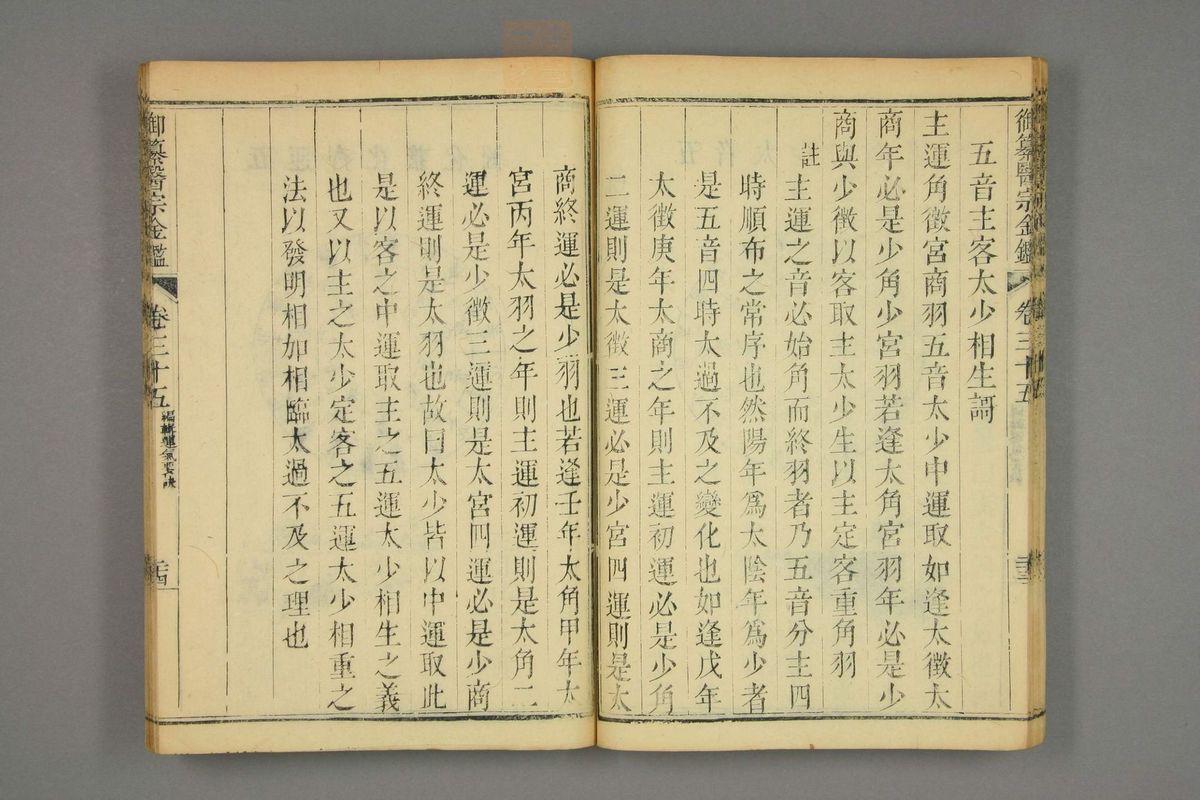 御纂醫宗金鑑
卷三十五
五音主客太少相生謌
主運角徵宮商羽五音太少中運取如逢太徵太
商年必是少角少宮羽若逢太角宮羽年必是少
商與少徵以客取主太少生以主定客重角羽
註主運之音必始角而終羽者乃五音分主四
時順布之常序也然陽年爲太陰年爲少者
是五音四時太過不及之變化也如逢戊年
太徵庚年太商之年則主運初運必是少角
二運則是太徵三運必是少宮四運則是太
商終運必是少羽也若逢壬年太角甲年太
宮丙年太羽之年則主運初運則是太角二
運必是少徵三運則是太宮四運必是少商
終運則是太羽也故曰太少皆以中運取此
是以客之中運取主之五運太少相生之義
也又以主之太少定客之五運太少相重之
法以發明相加相臨太過不及之理也
御纂醫宗金鑑
卷三十五
編輯運氣要訣